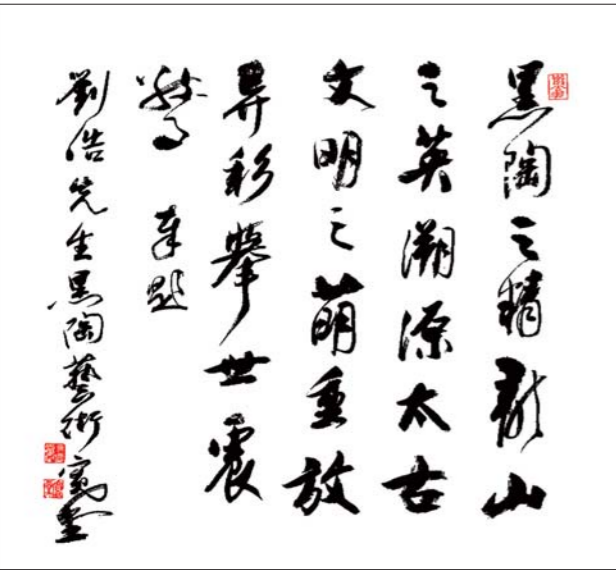 黑陶之精龍山
之英溯源太古
文明之萌重放
異彩舉世震
驚 奉題
劉浩先生黑陶藝術